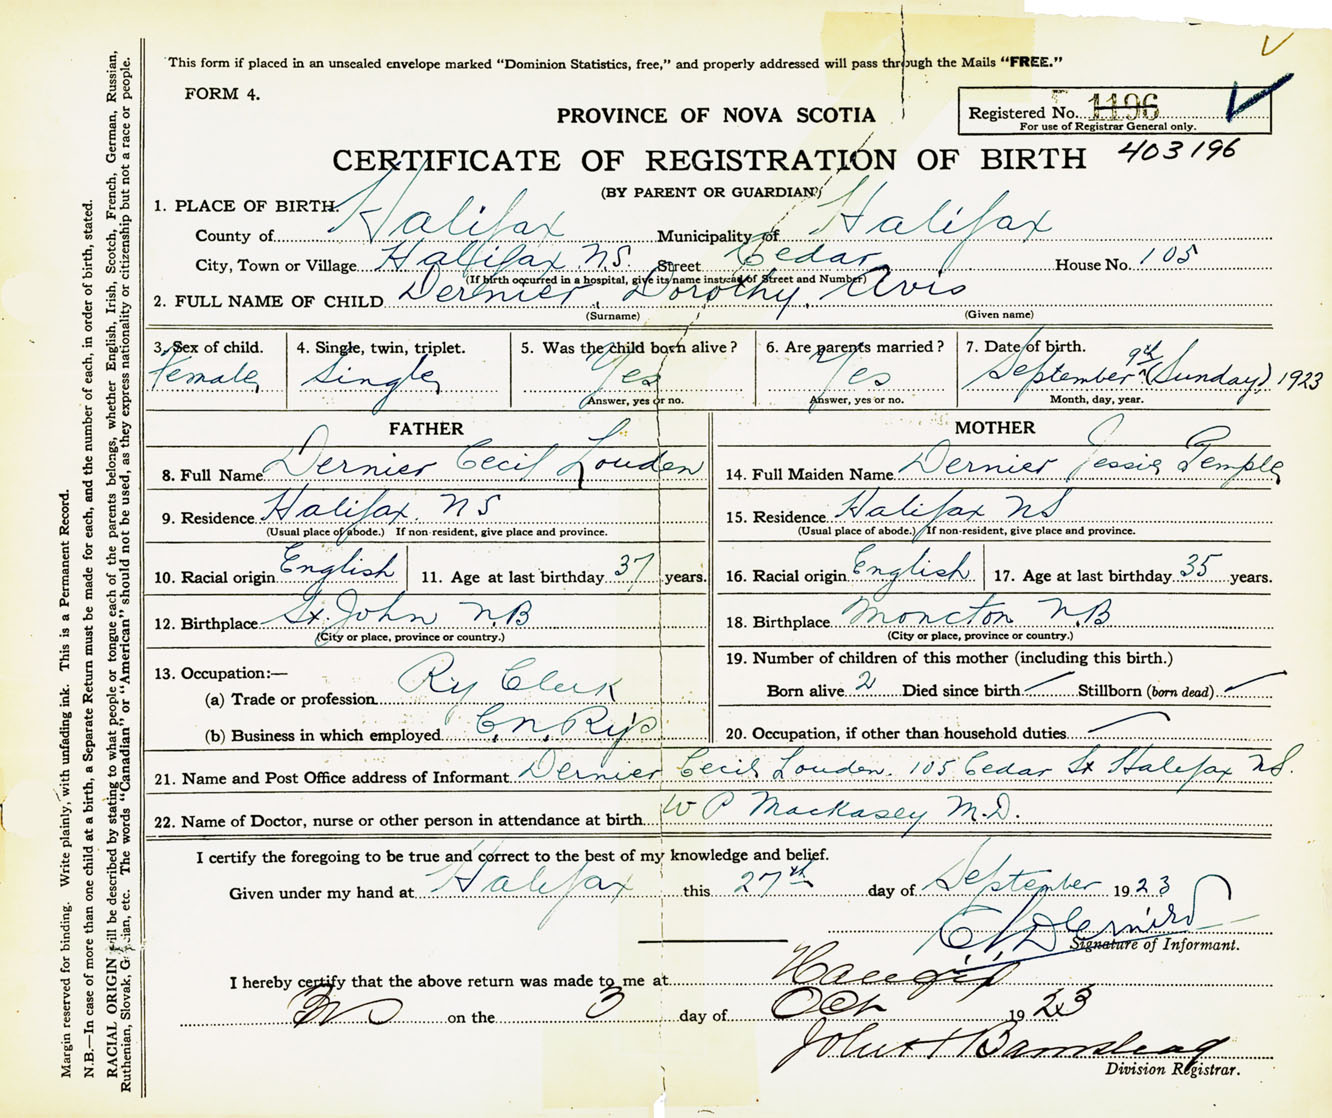 This form if placed in an unsealed envelope marked "Dominion Statistics, free," and properly addressed will pass through the Mails "FREE."
FORM 4.
PROVINCE OF NOVA SCOTIA
Registered No. 1196
For use of Registrar General only.
CERTIFICATE OF REGISTRATION OF BIRTH 403196
(BY PARENT OR GUARDIAN)
1. PLACE OF BIRTH.
County of Halifax Municipality of Halifax
City, Town or Village Halifax N.S. Street Cedar House No. 105
(If birth occurred in a hospital, give its name instead of Street and Number)
2. FULL NAME OF CHILD Dernier, Dorothy Avis
(Surname) (Given name)
3. Sex of child. 4. Single, twin, triplet. 5. Was the child born alive? 6. Are parents married? 7. Date of birth.
Female Single Yes Yes September 9th (Sunday) 1923
Answer, yes or no. Answer, yes or no. Month, day, year.
FATHER MOTHER
8. Full Name Dernier Cecil Louden 14. Full Maiden Name Dernier Jessie Temple
9. Residence Halifax. NS 15. Residence Halifax NS
(Usual place of abode.) If non-resident, give place and province. (Usual place of abode.) If non-resident, give place and province.
10. Racial origin English 11. Age at last birthday 37 years. 16. Racial origin English 17. Age at last birthday 35 years.
12. Birthplace St. John N.B 18. Birthplace Moncton N.B
(City or place, province or country.) (City or place, province or country.)
13. Occupation:— 19. Number of children of this mother (including this birth.)
(a) Trade or profession Ry Clerk Born alive 2 Died since birth Stillborn (born dead)
(b) Business in which employed C.N. Ry's 20. Occupation, if other than household duties
21. Name and Post Office address of Informant Dernier Cecil Louden. 105 Cedar St Halifax NS.
22. Name of Doctor, nurse or other person in attendance at birth W P Mackasey M.D.
I certify the foregoing to be true and correct to the best of my knowledge and belief.
Given under my hand at Halifax this 27th day of September 1923
C L Dernier
Signature of Informant.
I hereby certify that the above return was made to me at Halifax
on the 3 day of Oct 1923
John H Barnstead
Division Registrar.
Margin reserved for binding. Write plainly, with unfading ink. This is a Permanent Record.
N.B.—In case of more than one child at a birth, a Separate Return must be made for each, and the number of each, in order of birth, stated.
RACIAL ORIGIN will be described by stating to what people or tongue each of the parents belongs, whether English, Irish, Scotch, French, German, Russian,
Ruthenian, Slovak, etc. The words "Canadian" or "American" should not be used, as they express nationality or citizenship but not a race or people.